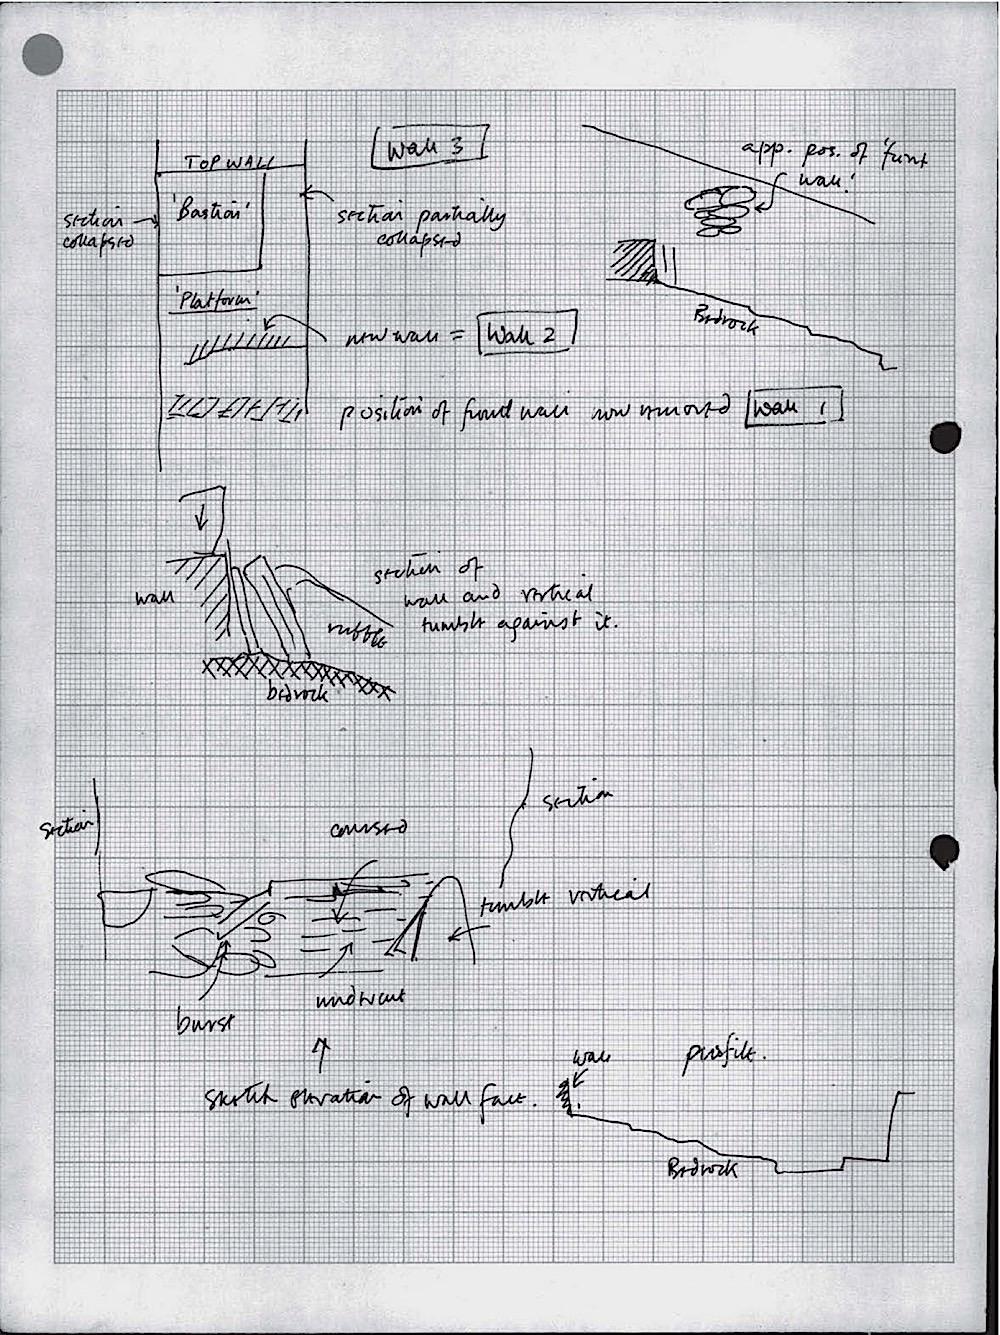 Wall 3
TOP WALL
'Bastion'
section
collapsed
section partially
collapsed
app. pos. of 'front
wall.'
'Platform'
new wall = Wall 2
Bedrock
position of front wall now removed Wall 1
wall
section of
wall and vertical
tumble against it.
rubble
bedrock
section
section
coursed
tumble vertical
undercut
burst
sketch elevation of wall face.
wall
profile.
Bedrock